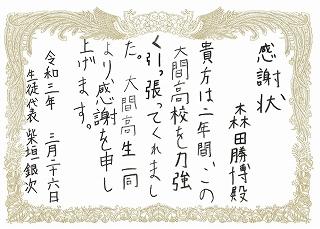 感謝状
森田勝博殿
貴方は二年間、この
大間高校を力強
く引っ張ってくれまし
た。大間高生一同
より感謝を申し
上げます。
令和三年 三月二十六日
生徒代表 柴垣銀次